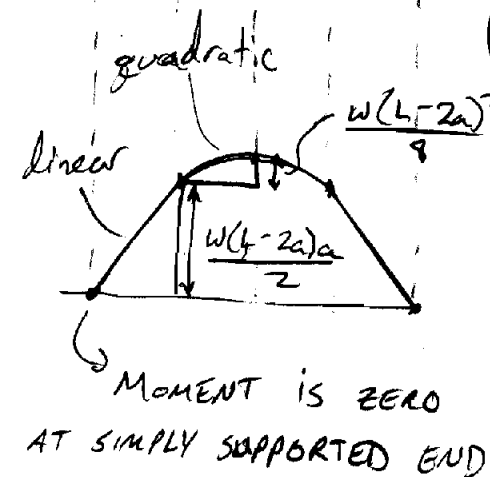 quadratic
linear
w(L-2a)
8
w(L-2a)a
2
MOMENT IS ZERO
AT SIMPLY SUPPORTED END